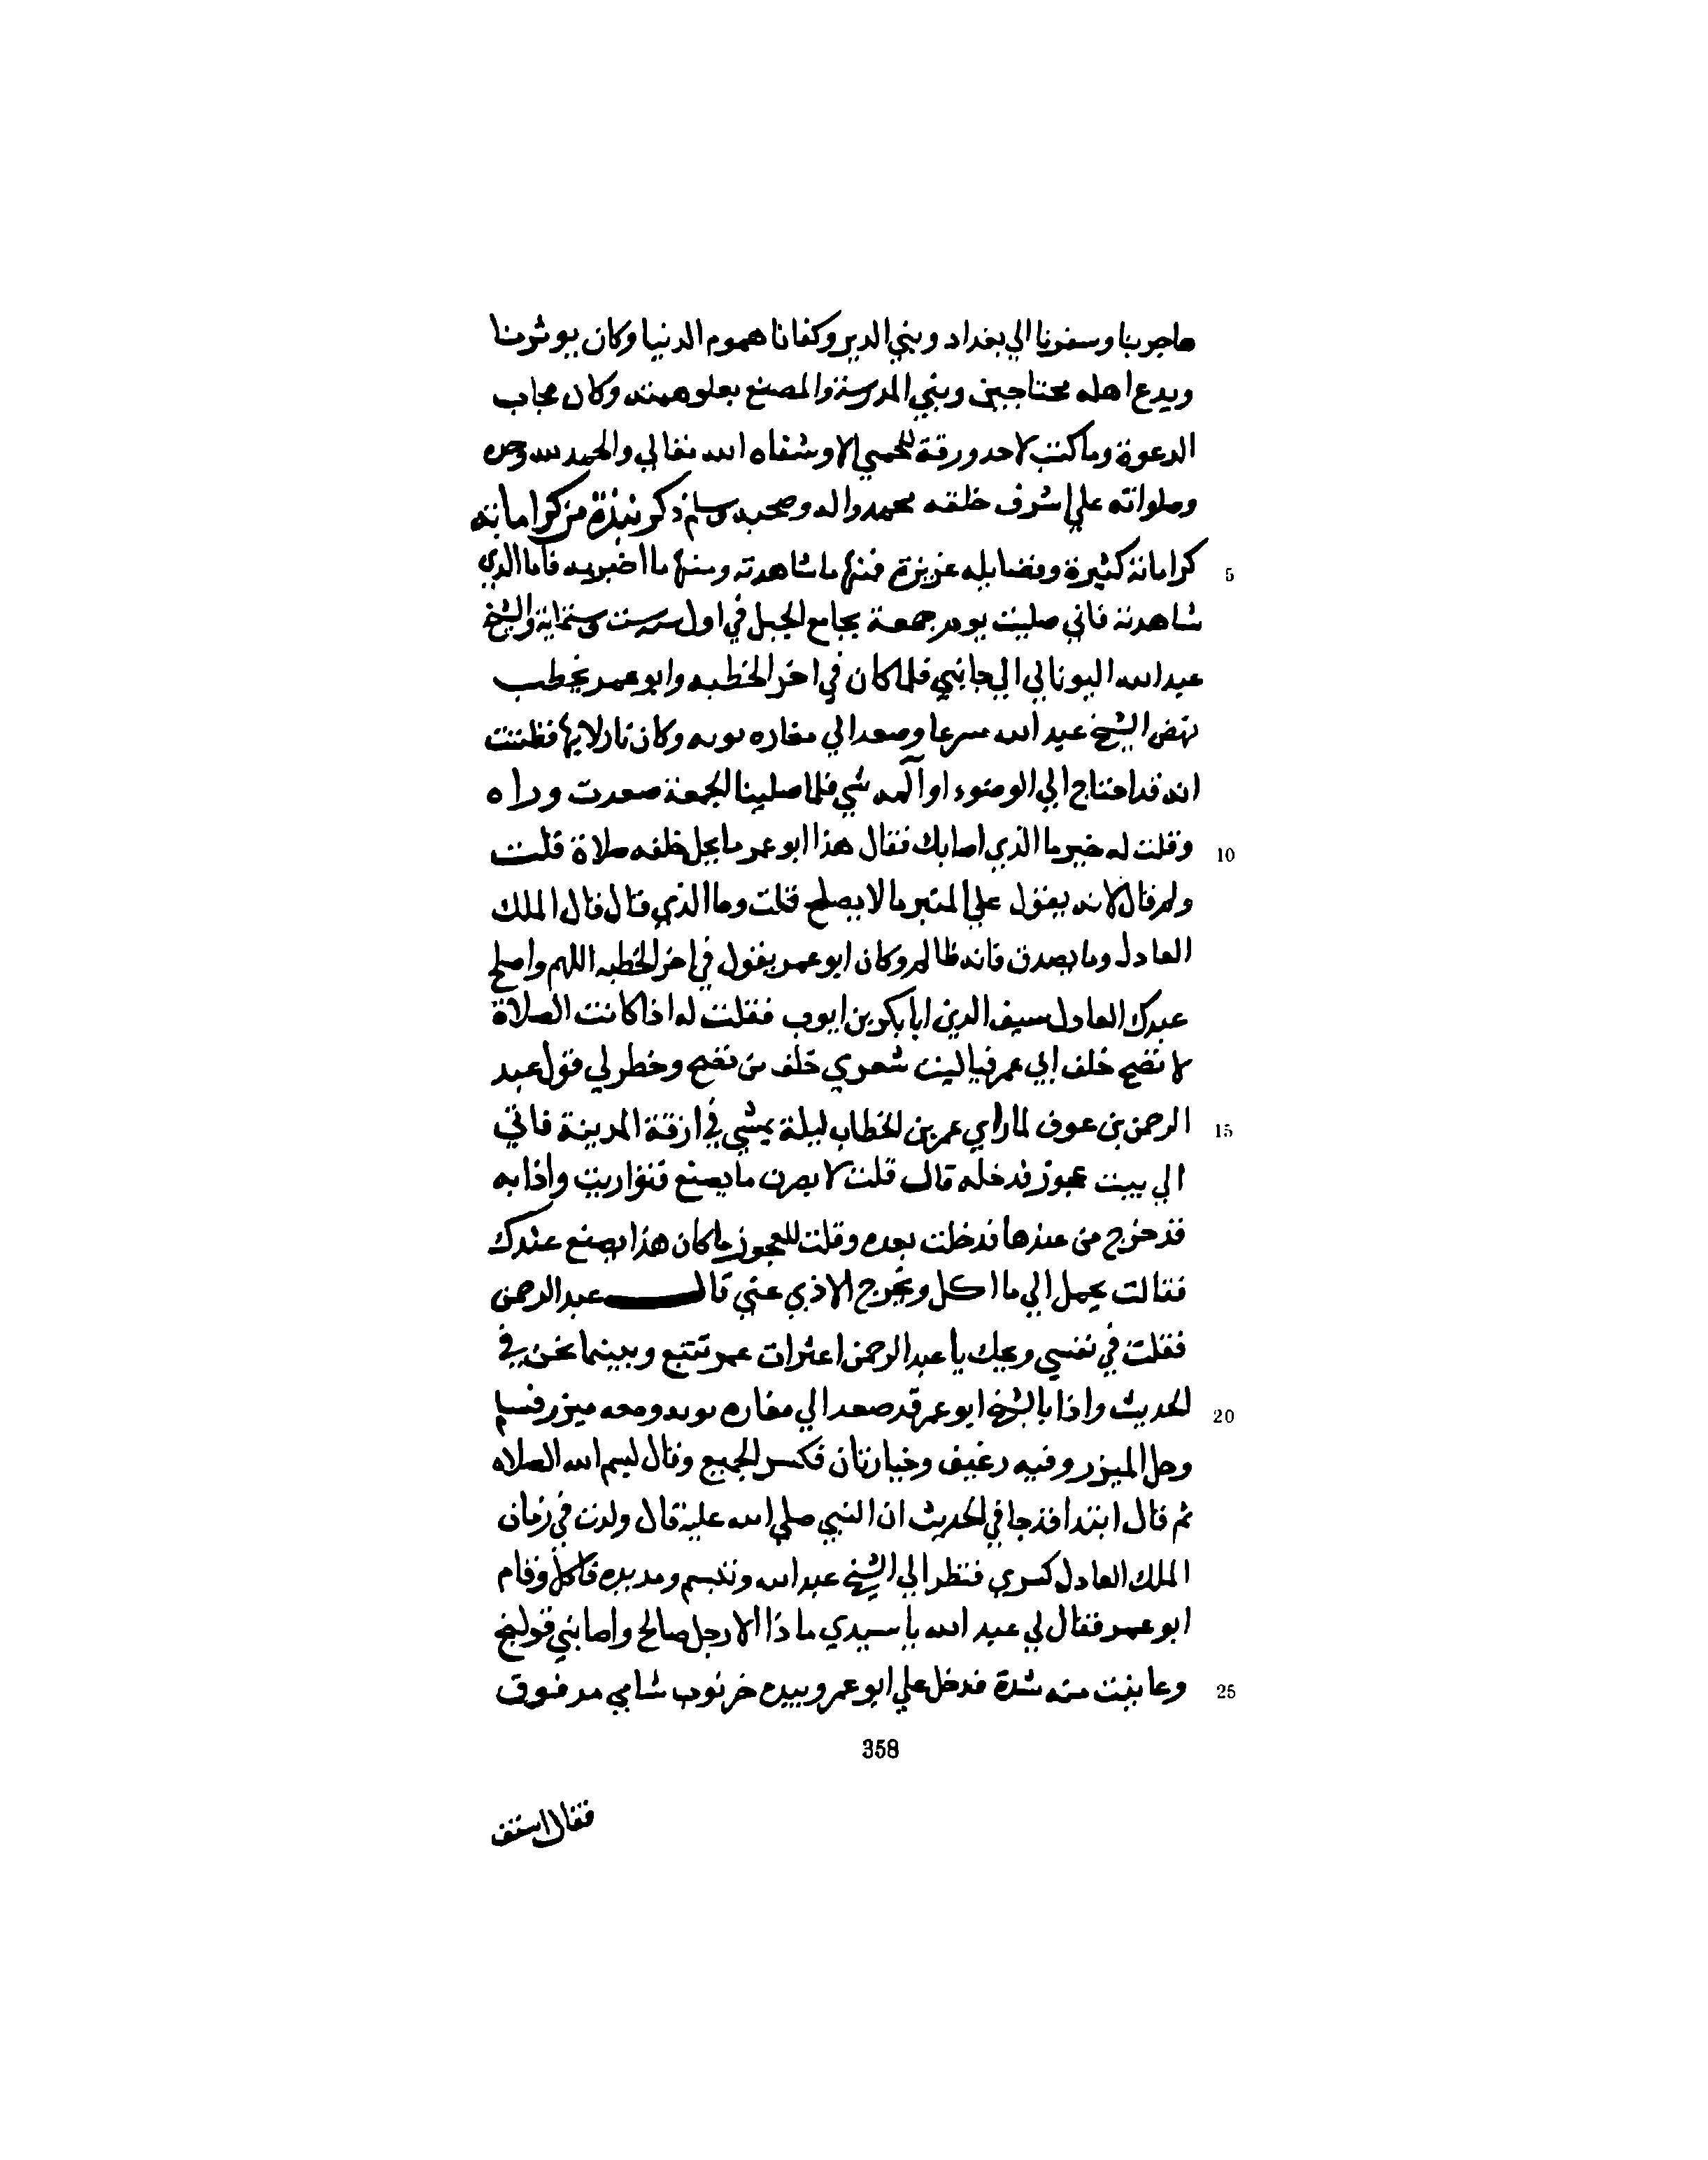 هاجر بنا وسفرنا الي بغداد وبني الدير وكفانا هموم الدنيا وكان يوثرنا
ويدع اهله محتاجين وبني المدرسة والمصنع بعلو همته وكان مجاب
الدعوة وما كتب لاحد ورقة للحمي الا وشفاه الله تعالي والحمد لله وحده
وصلواته علي اشرف خلقه محمد واله وصحبه وسلم ذكر نبذة من كراماته
كراماته كثيرة وفضايله عزيزة فمنها ما شاهدته ومنها ما اخبرت به فاما الذي
5
شاهدته فاني صليت يوم جمعة بجامع الجبل في اول سنة ست وستماية والشيخ
عبد الله اليوناني الي جانبي فلما كان في اخر الخطبه وابو عمر يخطب
نهض الشيخ عبد الله مسرعا وصعد الي مغاره توبه وكان نازلا بها فظننت
انه قد احتاج الي الوضوء او آلمه شي فلما صلينا الجمعة صعدت وراه
وقلت له خير ما الذي اصابك فقال هذا ابو عمر ما يحل خلفه صلاة قلت
10
ولم قال لانه يقول علي المنبر ما لا يصلح قلت وما الذي قال قال الملك
العادل وما يصدق فانه ظالم وكان ابو عمر يقول في اخر الخطبه اللهم واصلح
عبدك العادل سيف الدين ابا بكر بن ايوب فقلت له اذا كانت الصلاة
لا تصح خلف ابي عمر فيا ليت شعري خلف من تصح وخطر لي قول عبد
الرحمن بن عوف لما راي عمر بن الخطاب ليلة يمشي في ازقة المدينة فاتي
15
الي بيت عجوز فدخله قال قلت لابصرن ما يصنع فتواريت واذا به
قد خرج من عندها فدخلت بعده وقلت للعجوز ما كان هذا يصنع عندك
فقالت يحمل الي ما اكل ويخرج الاذي عني قال عبد الرحمن
فقلت في نفسي ويحك يا عبد الرحمن اعثرات عمر تتبع وبينما نحن في
الحديث واذا بالشيخ ابو عمر قد صعد الي مغاره توبه ومعه ميزر فسلم
20
وحل الميزر وفيه رغيف وخيارتان فكسر الجميع وقال لبسم الله الصلاه
ثم قال ابتدا قد جا في الحديث ان النبي صلي الله عليه قال ولدت في زمان
الملك العادل كسري فنظر الي الشيخ عبد الله وتبسم ومد يده فاكل وقام
ابو عمر فقال لي عبد الله يا سيدي ما ذا الا رجل صالح واصابني قولنج
وعاينت منه شدة فدخل علي ابو عمر وبيده خرنوب شامي مدقوق
25
358
فقال استف